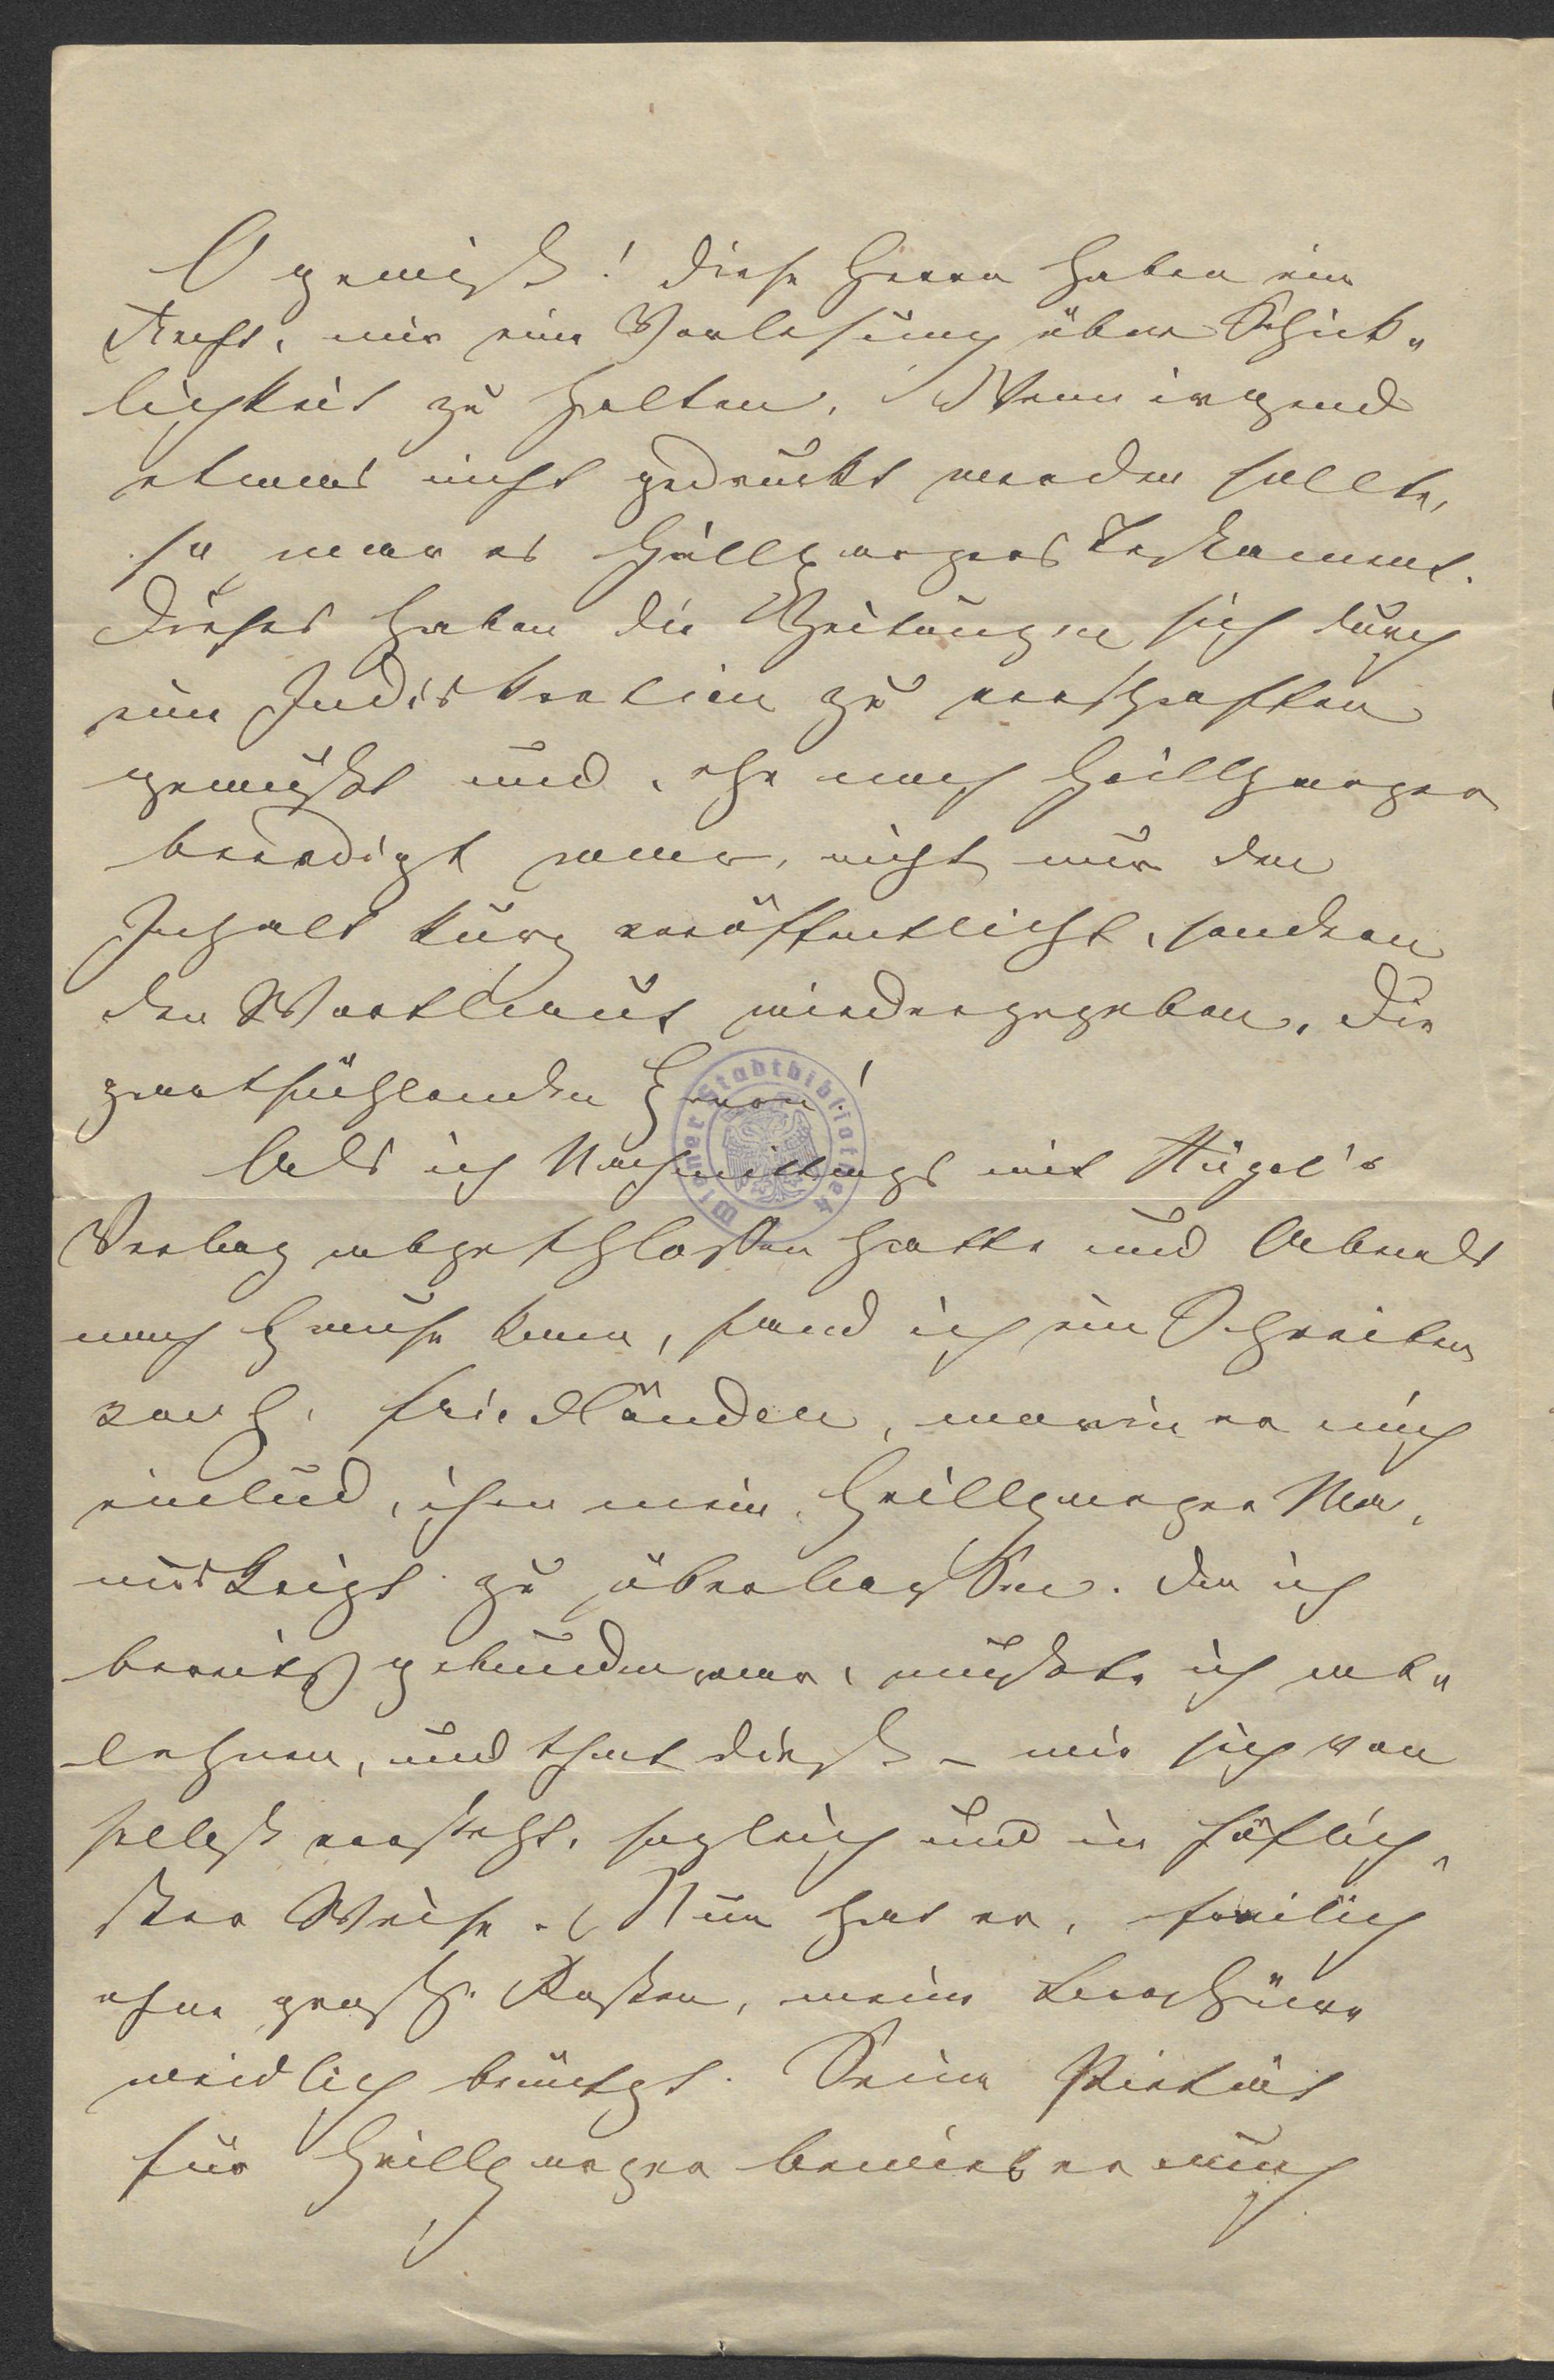 O gewiß! diese Herrn haben ein
Recht, mir eine Vorlesung über Schick„
lichkeit zu halten. Wenn irgend
etwas nicht gedruckt werden sollte,
so war es Grillparzers Testament.
Dieses haben die Zeitungen sich durch
eine Indiskretion zu verschaffen
gewußt und, ehe noch Grillparzer
beerdigt war, nicht nur den
Inhalt kurz veröffentlicht, sondern
den Wortlaut wiedergegeben, die
zartfühlenden Herren!
Als ich Nachmittags mit Hügel's
Verlag abgeschlossen hatte und Abends
nach Hause kam, fand ich ein Schreiben
von H. Friedländer, worin er mich
einlud, ihm mein Grillparzer Ma„
nuskript zu überlassen. Da ich
bereits gebunden war, mußte ich ab„
lehnen, und that dieß – wie sich von
selbst versteht, sogleich und in höflich„
ster Weise. Nun hat er, freilich
ohne große Kosten, meine Broschüre
weidlich benützt. Seine Pietät
für Grillparzer bewies er auch
Wiener Stadtbibliothek